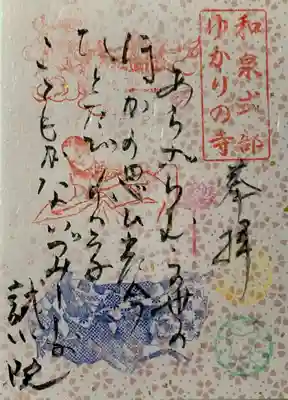 和泉式部
ゆかりの寺
奉拝
あらざらむこの世の
ほかの思ひ出に今
ひとたびの
こともがな いづみしきぶ
誠心院